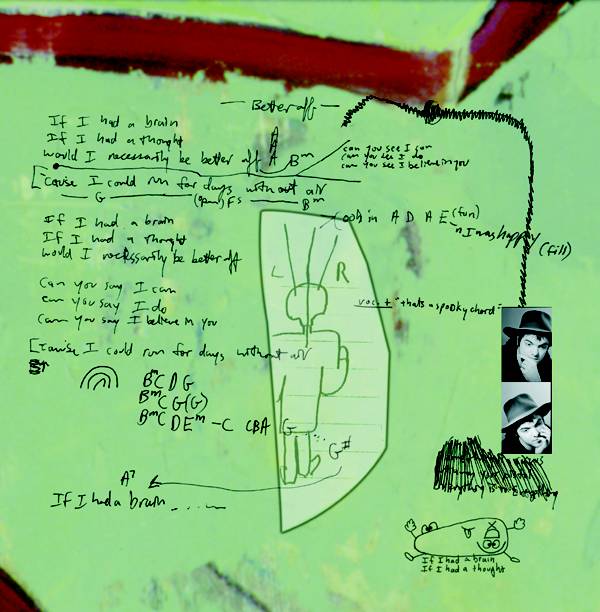 — Better off —
If I had a brain
If I had a thought
would I necessarily be better off
A Bm
can you see I can
can you see I do
can you see I believe in you
['cause I could run for days without air
G (open) F♯ Bm
If I had a brain
If I had a thought
would I necessarily be better off
(ooh in A D A E (fun)
I was happy (fill)
L R
Can you say I can
can you say I do
can you say I believe in you
"thats a spooky chord"
['cause I could run for days without air
Bm C D G
Bm C G (G)
Bm C D Em - C CBA G
G#
A7
If I had a brain ......
If I had a brain
If I had a thought